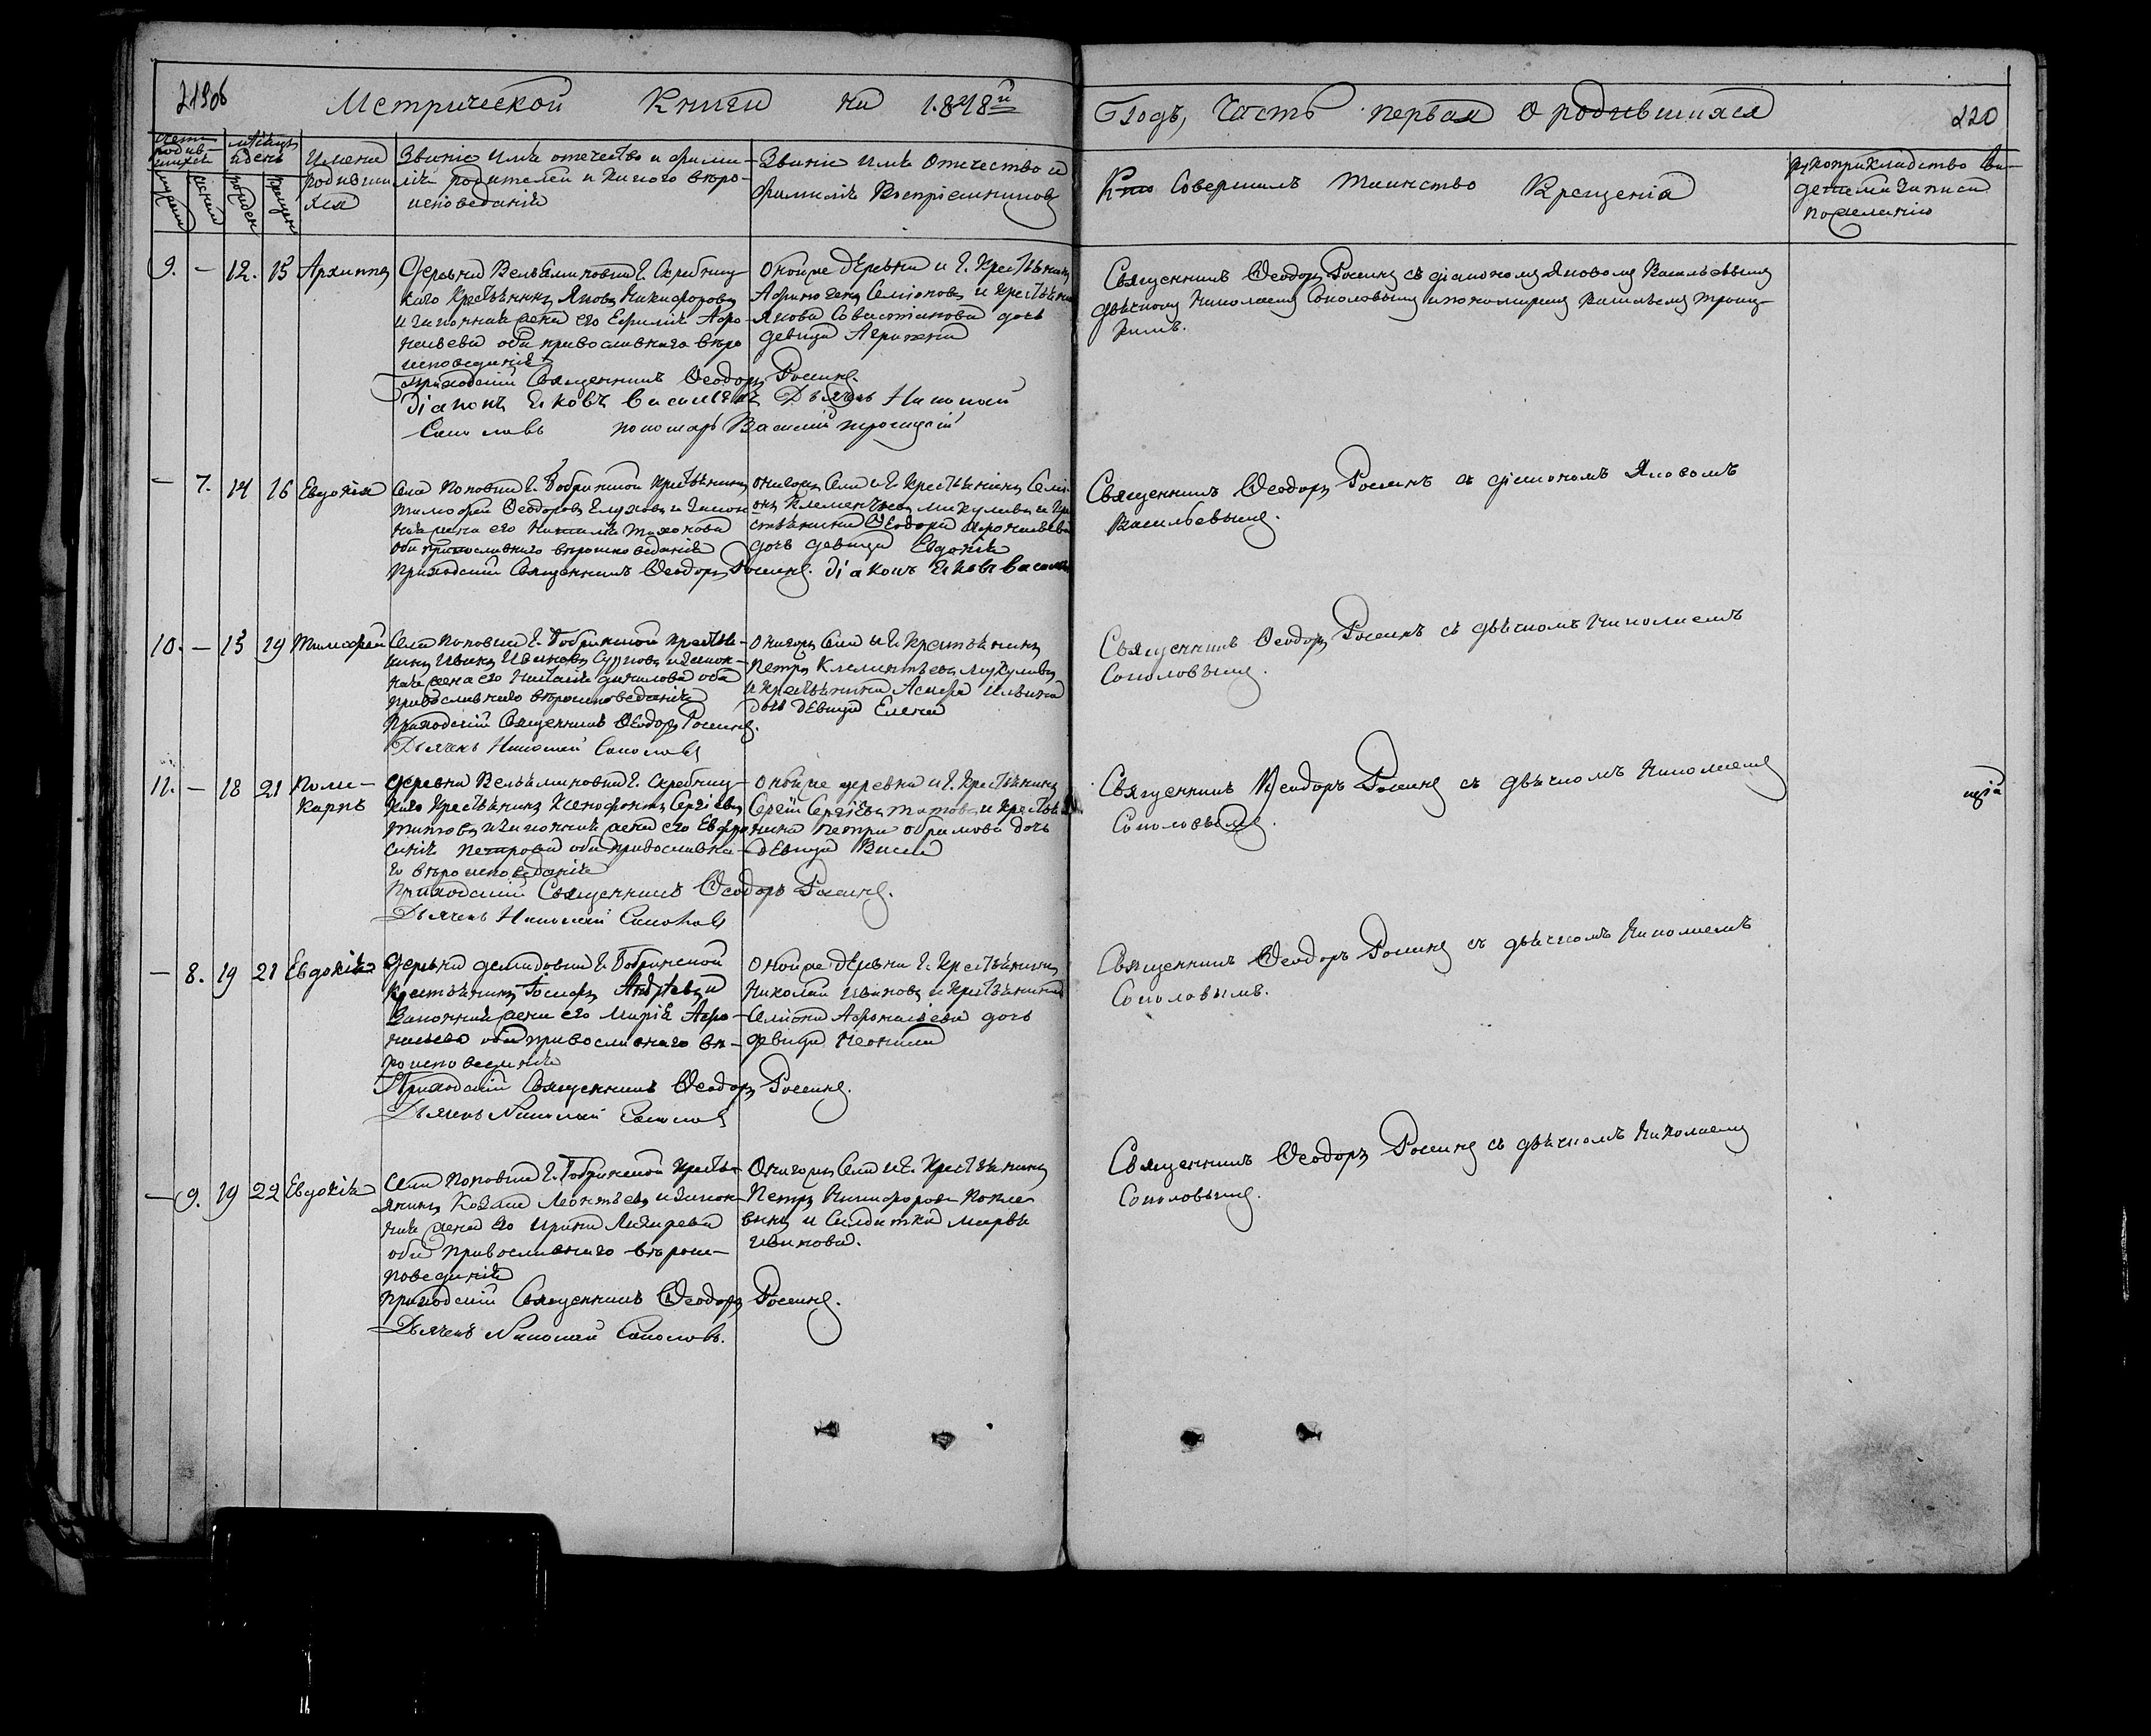 219об
Метрической Книги на 1.848й Годъ, Часть первая о родившихся
220
счетъ родившихся
мужеск
женск
Мѣсяцъ и день
рожден
крещен
Имена родившихся
Званіе имя отечество и фамилія родителей и какого вѣроисповеданія
Званіе имя отечество и фамилія воспріемниковъ
Кто Совершилъ таинство Крещенія
рукоприкладство свидетелей записи по желанію
9. — 12. 15 Архиппъ
Деревни Вельяминовки Г.
каго Крестьянинъ Яковъ Никифоровъ
и законная жена его Афро-
ньева оба православнаго вѣро
исповеданія
Приходскій Священникъ Ѳеодоръ
Діаконъ Яковъ Василевъ Дьячокъ Николай
Соколовъ пономарь Василий Троицкій
Оной же деревни и Г. Крестьянинъ
Афиногенъ Семіоновъ и крестьяни
Якова дочь
девица Агрипена
Священникъ Ѳеодоръ съ діакономъ Яковомъ Васильевымъ
дьячкомъ Николаемъ Соколовымъ и пономаремъ Васильемъ Троиц-
кимъ.
— 7. 14 16 Евдокія
Села Поповки Г. Бобринской крестьянинъ
Тимофей Ѳеодоровъ и закон
ная жена его Наталія
оба православнаго вѣроисповеданія
Приходскій Священникъ Ѳеодоръ діаконъ Яковъ Василев
онагожъ Села и Г. Крестьянинъ Семі-
онъ Клементьевъ Микулинъ и кре
стьянина Ѳеодора Афонасьева
дочь девица Евдокія
Священникъ Ѳеодоръ съ діакономъ Яковомъ
Васильевымъ.
10. — 15 19 Тимофей
Села Поповки Г. Бобринской крестья-
нинъ Иванъ Ивановъ и закон-
ная жена его Наталія Данилова оба
православнаго вѣроисповеданія
Приходскій Священникъ Ѳеодоръ
Дьячекъ Николай Соколовъ
Онагожъ Села и Г. Крестьянинъ
Петръ Клементьевъ Микулинъ
и крестьянина Ильина
дочь девица Елена
Священникъ Ѳеодоръ съ дьячкомъ Николаемъ
Соколовымъ.
11. — 18 21 Поли-
карпъ
Деревни Вельяминовки Г.
каго Крестьянинъ Ксенофонтъ Сергіевъ
Титовъ и законная жена его Евфро
синія Петрова оба православна-
го вѣроисповеданія
Приходскій Священникъ Ѳеодоръ
Дьячекъ Николай Соколовъ
Оной же деревни и Г. Крестьянинъ
Сергій Сергіевъ Титовъ и крестья
нина Петра Абрамова дочь
девица Васса
Священникъ Ѳеодоръ съ дьячкомъ Николаемъ
Соколовымъ.
— 8. 19 21 Евдокія
Деревни Демидовки Г. Бобринской
Крестьянинъ Андрѣевъ и
Законная жена его Марія Афо-
насьева оба православнаго вѣ-
роисповеданія
Приходскій Священникъ Ѳеодоръ
Дьячекъ Николай Соколовъ
Оной же деревни Г. Крестьянинъ
Николай Ивановъ и крестьянина
Семіона Афонасіева дочь
девица Неонила
Священникъ Ѳеодоръ съ дьячкомъ Николаемъ
Соколовымъ.
— 9. 19 22 Евдокія
Села Поповки Г. Бобринской Кресть-
янинъ Козма Леонтьевъ и закон-
ная жена его Ирина Лазарева
оба православнаго вѣроис-
поведанія
Приходскій Священникъ Ѳеодоръ
Дьячекъ Николай Соколовъ.
Онагожъ Села и Г. Крестьянинъ
Петръ Никифоровъ
и Салдатка Марѳа
Иванова.
Священникъ Ѳеодоръ съ дьячкомъ Николаемъ
Соколовымъ.